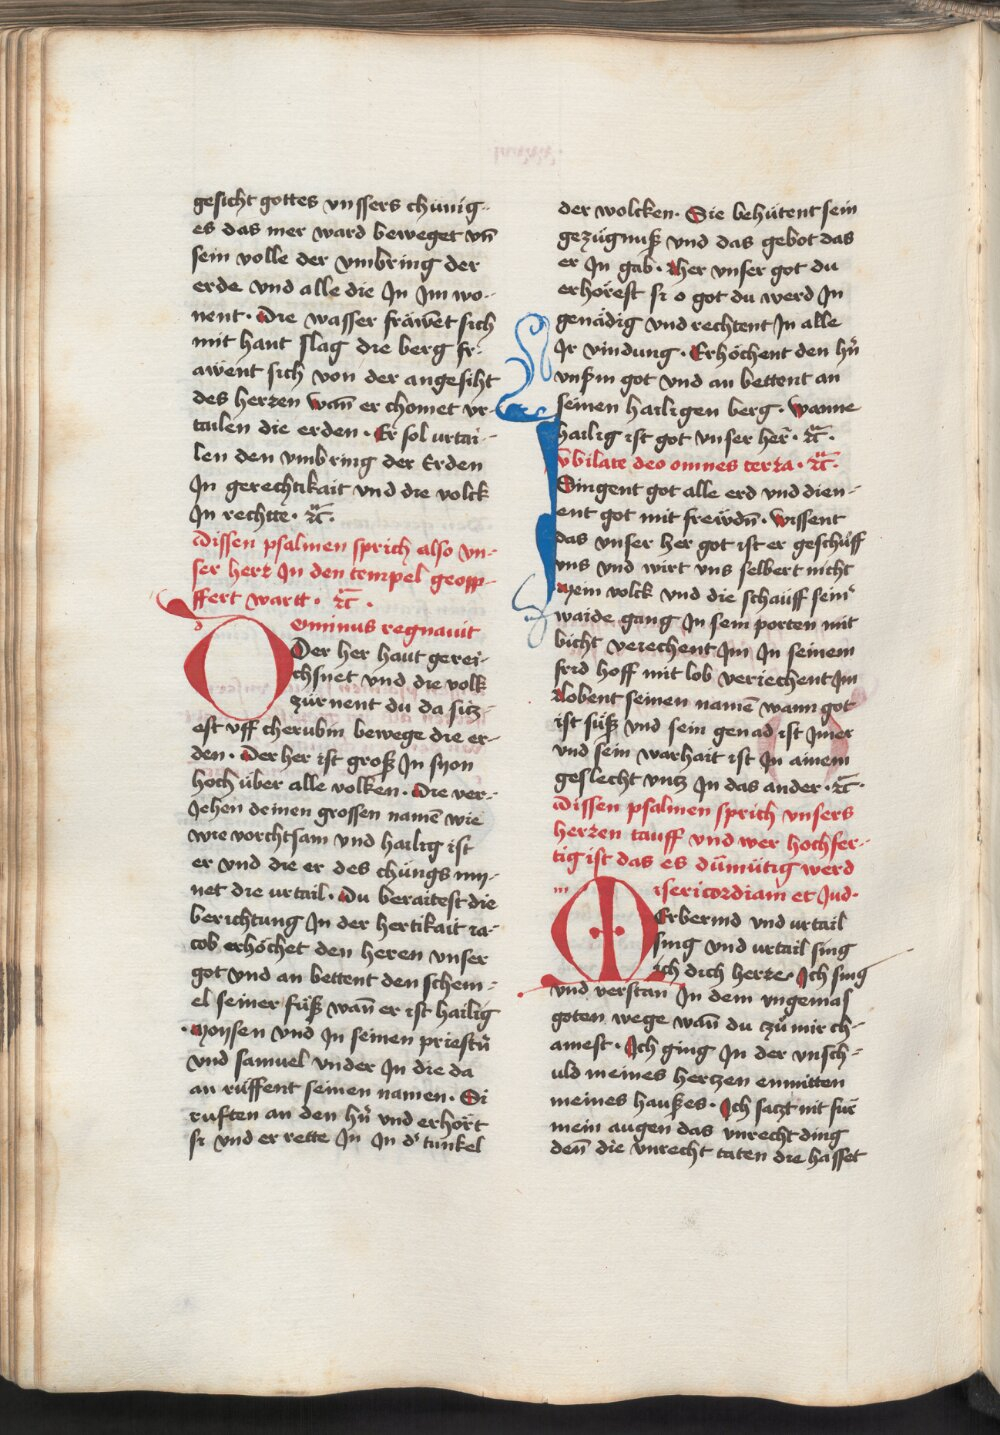 gesicht gottes vnssers chünig-
es das mer ward beweget vn̄
sein volle der vmbring der
erde vnd alle die Jn Jm wo-
nent · Die wasser fräwēt sich
mit hant slag die berg fr-
äwent sich von der angesiht
des herzen wan̄ er chomet vr-
tailen die erden · Er sol urtai-
len den vmbring der Erden
Jn gerechtikait vnd die volck
Jn rechtte · ꝛc̄ ·
Dissen psalmen sprich also vn-
ser herz Jn den tempel geopp-
ffert wartt · ꝛc̄ ·
Dominus regnauit
Der her haut gerei-
chsnet vnd die volk
zürnent du da sitz-
est vff cherubin bewege die er-
den · Der her ist groß Jn syon
hoch über alle volken · Die ver-
Jehen deinen grossen namē wie
wie vorchtsam vnd hailig ist
er vnd die er des chüngs my-
net die urtail · Du beraitest die
berichtung Jn der hertikait ia-
cob erhöchet den heren unser
got vnd an bettent den schem-
el seiner füß wan̄ er ist hailig
· Moysen vnd Jn seinen priestn̄
vnd samuel vnder Jn die da
an rüffent seinen namen · Si
ruften an den hn̄ vnd erhört
si vnd er rette Jn Jn d' tunkel
der wolcken · Sie behütent sein
gezügnuß vnd das gebot das
er Jn gab · Her vnser got du
erhörest si o got du werd Jn
genädig vnd rechtent Jn alle
Jr vindung · Erhöchent den hn̄
vnßm got vnd an bettent an
seinen hailigen berg · Wanne
hailig ist got vnser her̄ · ꝛc̄ ·
Jvbilate deo omnes terza · ꝛc̄ ·
Singent got alle erd vnd dien-
ent got mit frewdn̄ · Wissent
das vnser her got ist er geschüff
vns vnd wirt vns selbert nicht
Mein volck vnd die schauff sein'
waide gang Jn sein porten mit
bicht verechent Jm Jn seinem
frid hoff mit lob veriechent Jm
Lobent seinen namē wann got
ist süß vnd sein genad ist Jmer
vnd sein warhait ist Jn ainem
geslecht vntz Jn das ander · ꝛc̄ ·
Dissen psalmen sprich unsers
herzen tauff vnd wer hochfer-
tig ist das es dümütig werd
Misericordiam et Jud-
Erbermd vnd urtail
sing vnd urtail sing
ich dich herze · Jch sing
vnd verstan Jn dem vngemas
goten wege wan̄ du zü mir ch-
amest · Jch ging Jn der vnsch-
uld meines hertzen enmitten
meines haußes · Jch satzt nit für
mein augen das vnrecht ding
den̄ die vnrecht taten die hasset